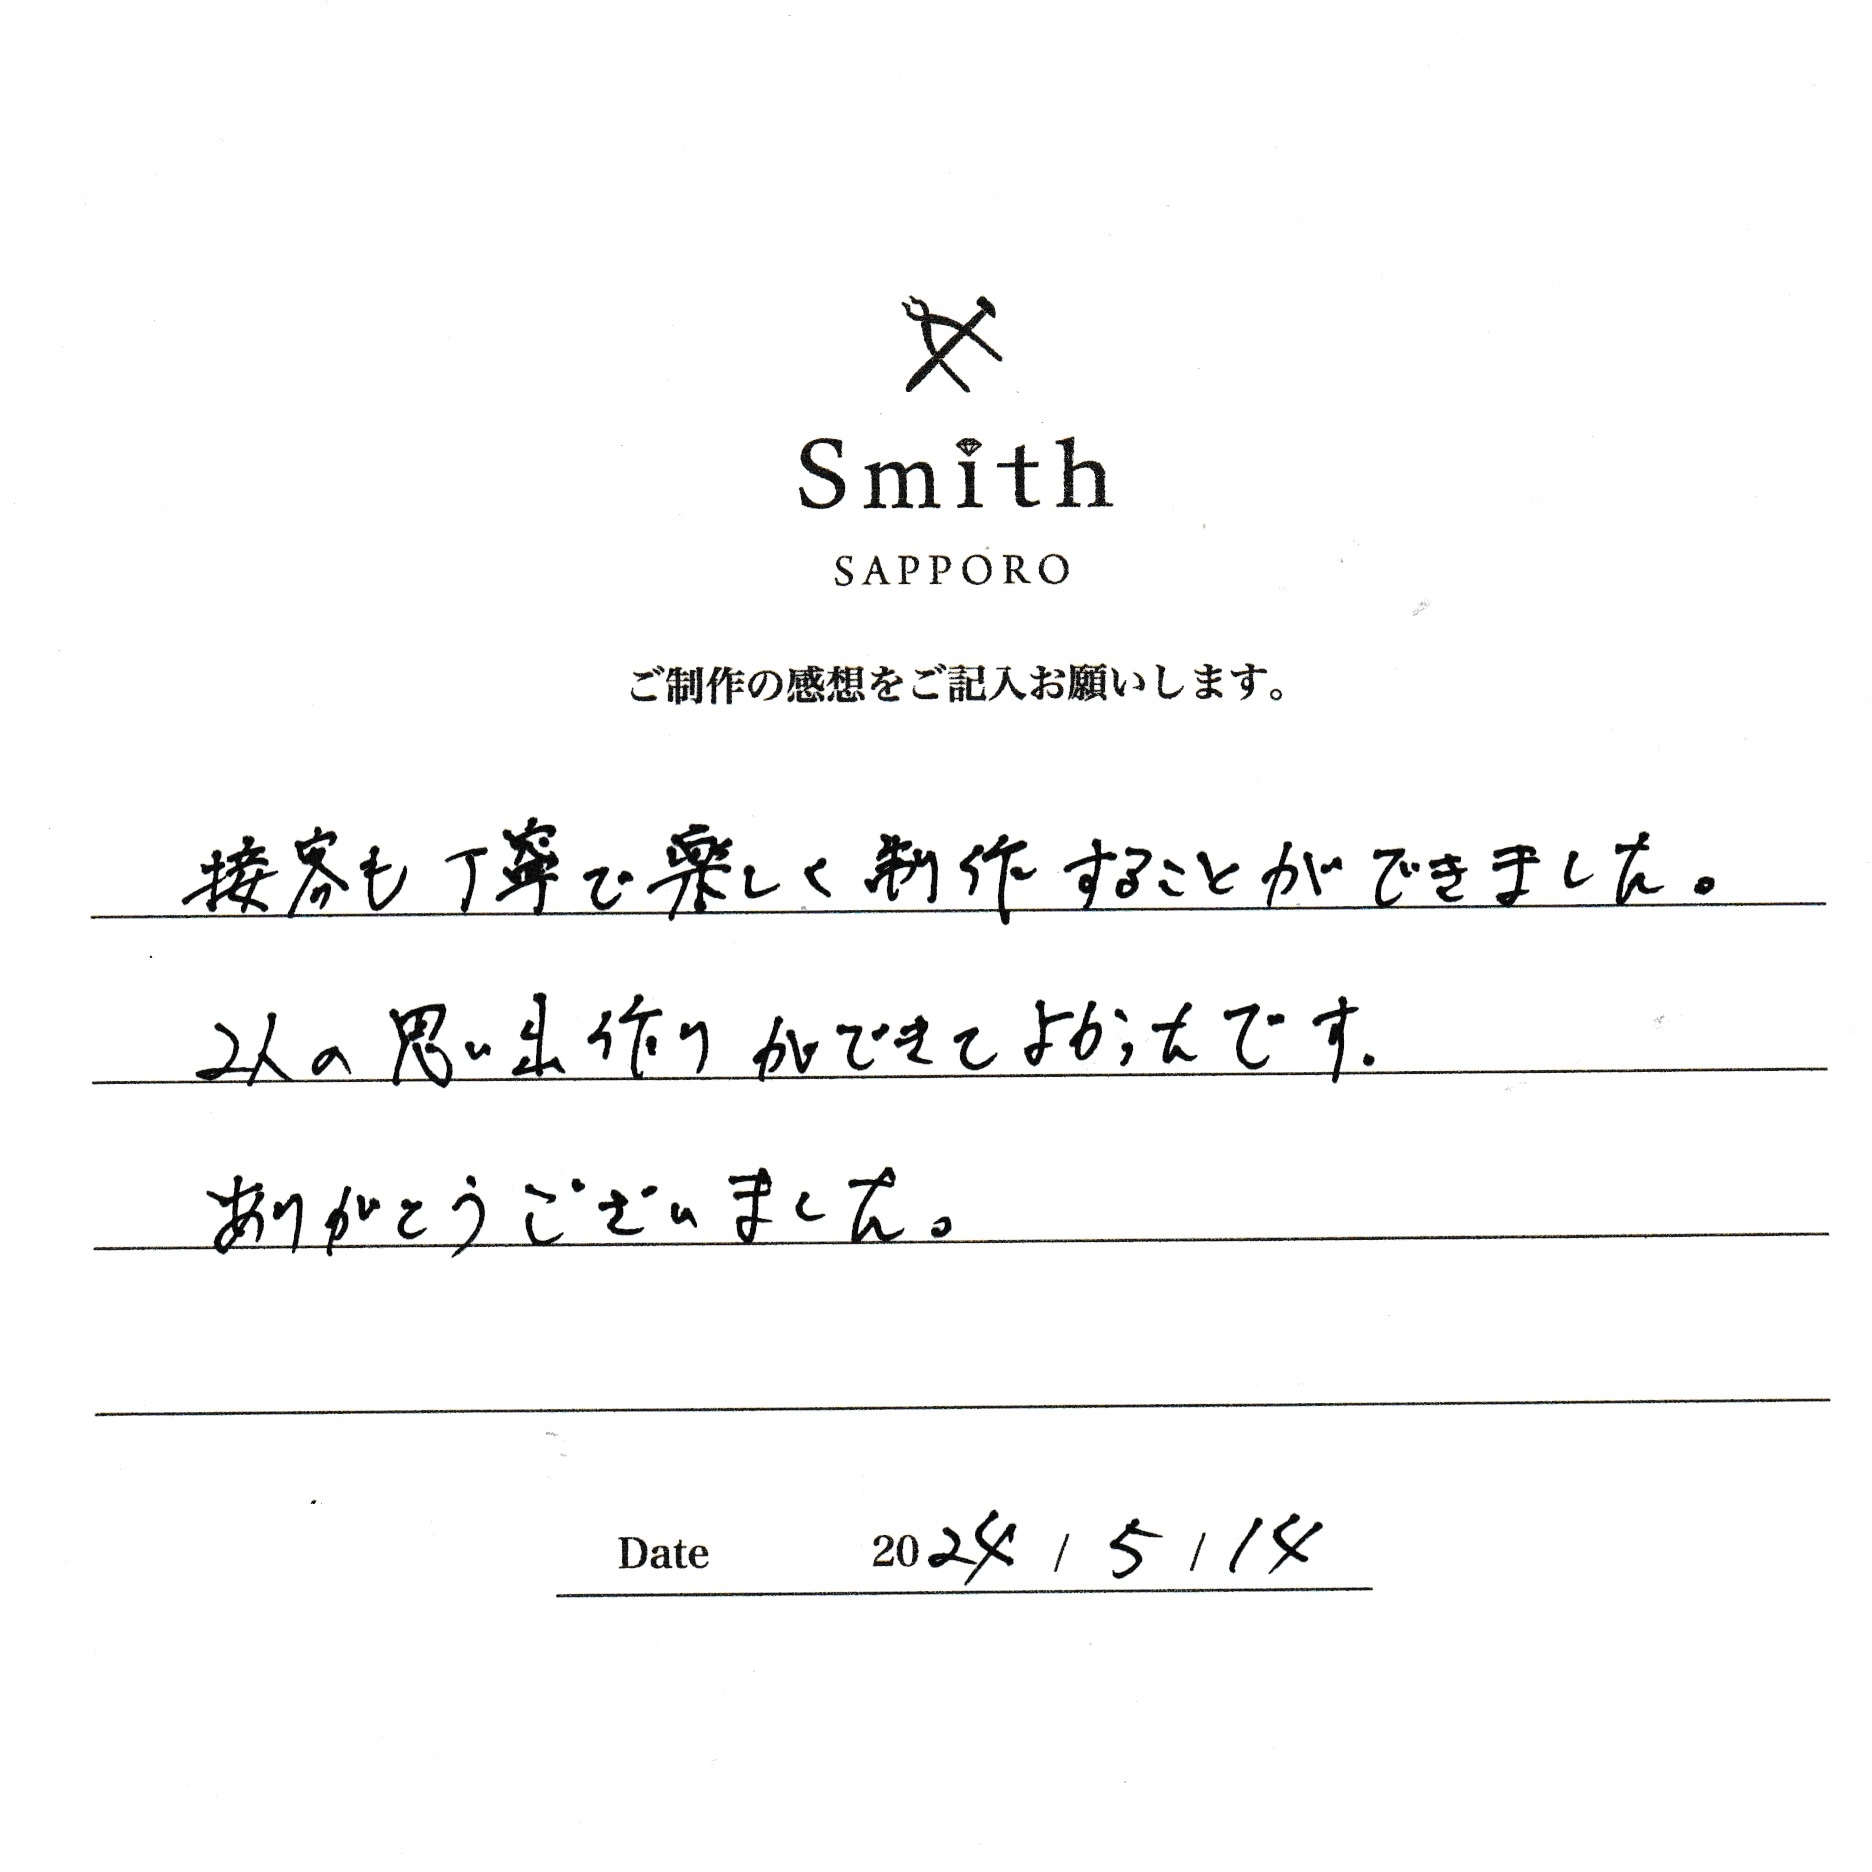 Smith
SAPPORO
ご制作の感想をご記入お願いします。
接客も丁寧で楽しく制作することができました。
2人の思い出作りができてよかったです。
ありがとうございました。
Date 2024/5/14